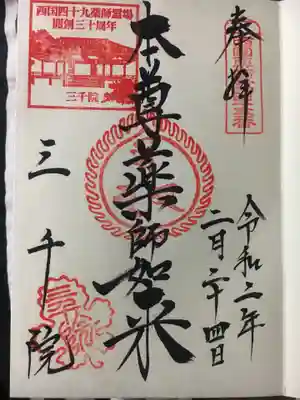 奉拝
令和二年
二月二十四日
本尊薬師如来
西国四十九薬師霊場
開創三十周年
三千院
三千院